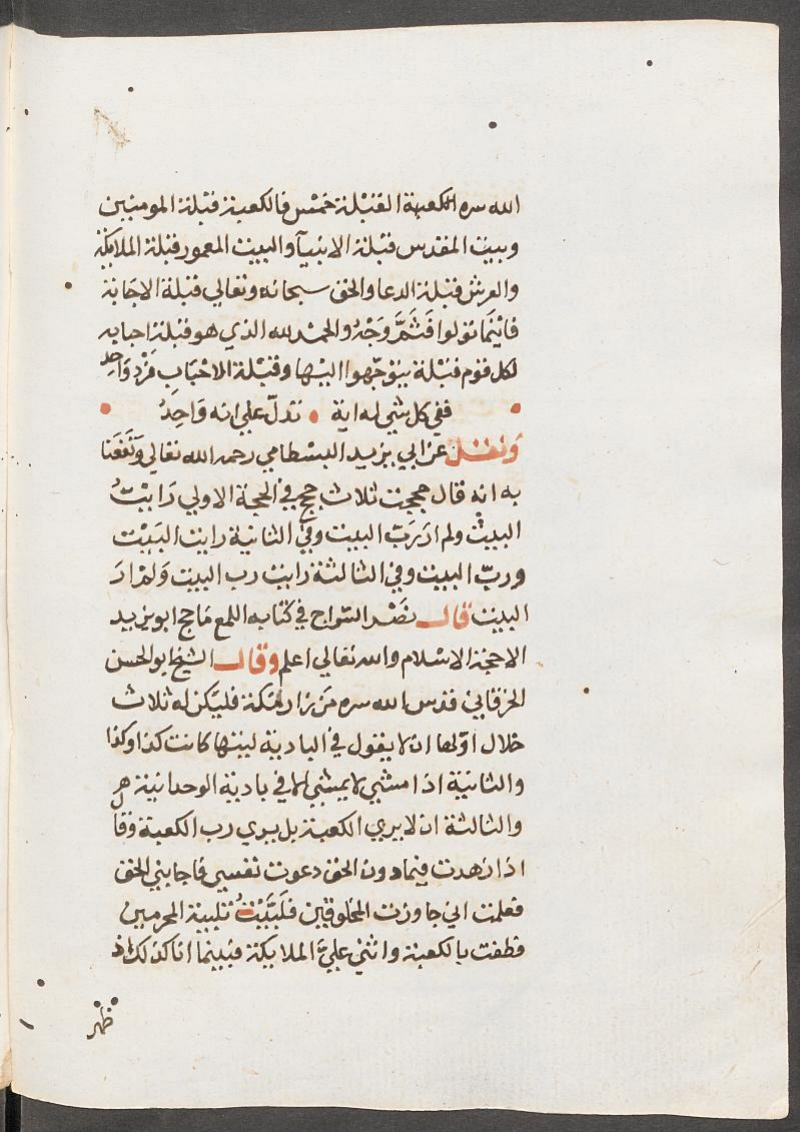 الله سره الكعبة القبلة خمس فالكعبة قبلة المومنين
وبيت المقدس قبلة الانبيآ والبيت المعمور قبلة الملايكة
والعرش قبلة الدعا والحق سبحانه وتعالي قبلة الاجابة
فاَيْنَما تولوا فَثَمَّ وَجْهُ والحمد لله الذي هو قبلة احبابه
لكل قوم قبلة يتوجّهوا اليها وقبلة الاحْبَابِ فَرْد وَاحِد
ففي كل شي له اية تدلّ علي انه وَاحِدُ
وَنقل عن ابي يزيد البسْطامي رحمه الله تعالي وَنَفَعَنا
به انه قال حججت ثلاث حجج في الحجة الاولي رَايْتُ
البيتْ ولم ارَ رَبّ البيت وفي الثانية رايت البَيْت
وربّ البيت وفي الثالثة رايت رب البيت وَلمْ ارَ
البيت قال نصْر السّراج في كتابه اللمع مَا حج ابو يزيد
الا حجة الاسْلام والله تعالي اعلم وقال الشيخ ابو الحسن
الخرقاني قدس الله سره مَن زار مكة فليكن له ثلاث
خلال اوّلها ان لا يقول في البادية ليتها كانت كذا وكذا
والثانية اذا مشي لا يمشي الا في بادية الوحدانية
والثالثة ان لا يري الكعبة بل يري رب الكعبة وقا
اذا زهدت فيما دون الحق دعوت نفسي فاجابني الحق
فعلمت اني جاوزت المخلوقين فلَبَّيْتُ تلبية المحرمين
فطفت بالكعبة واثني عليَّ الملايكة فبينما انا كذلك اذ
ظهر